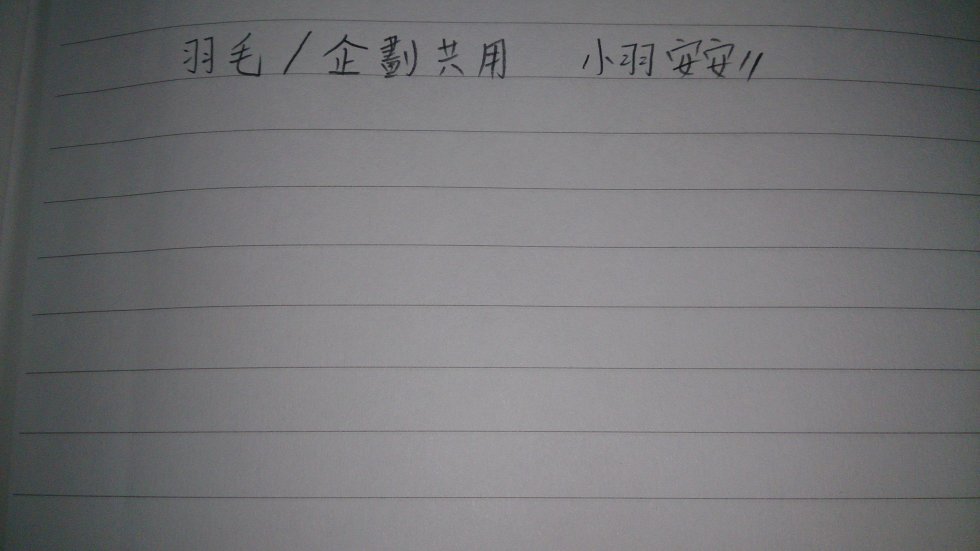 羽毛/企劃共用 小羽安安//